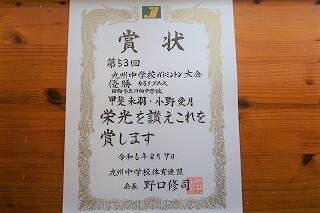 賞状
第53回
九州中学校バドミントン大会
優勝 女子ダブルス
甲斐未羽・小野愛月
栄光を讃えこれを
賞します
九州中学校体育連盟
会長 野口修司